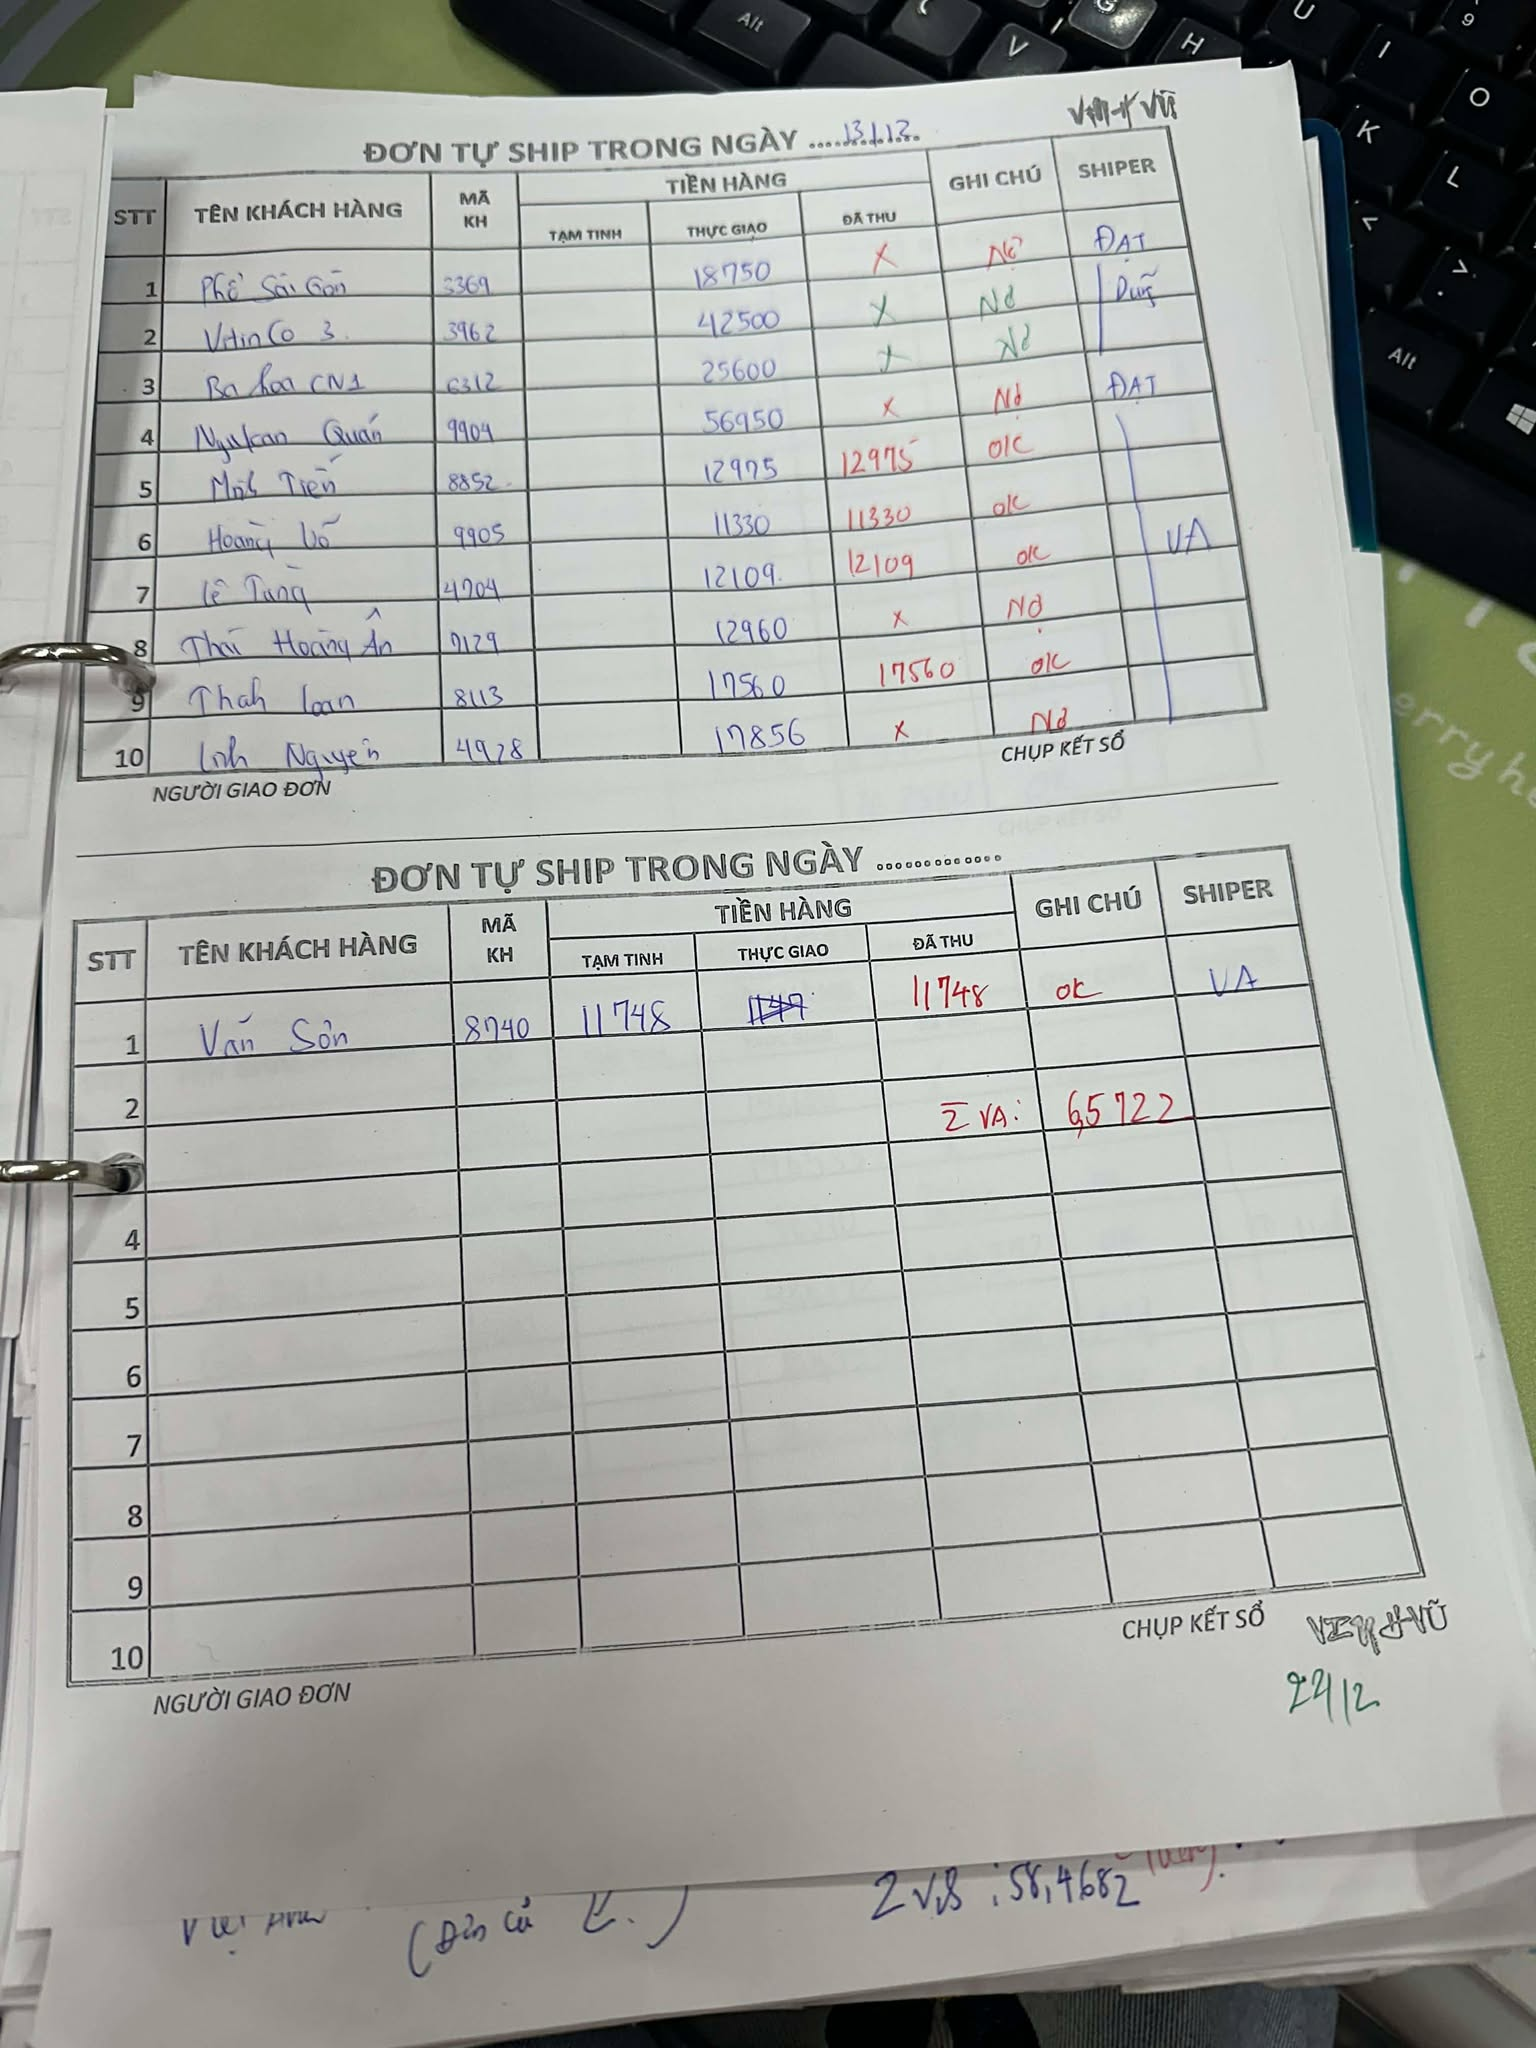 ĐƠN TỰ SHIP TRONG NGÀY ....13/12.
STT TÊN KHÁCH HÀNG MÃ KH TIỀN HÀNG GHI CHÚ SHIPER
TẠM TINH THỰC GIAO ĐÃ THU
1 Phở Sài Gòn 3369 18750 X Nợ ĐẠT
2 VitinCo 3. 3962 42500 X Nợ Dũng
3 Ba hoa CN1 6312 25600 X Nợ
4 Quán 9904 56950 X Nợ ĐẠT
5 Tiến 8852 12975 12975 OK
6 Hoàng Võ 9905 11330 11330 OK
7 Lê Tùng 4704 12109 12109 OK VA
8 Thái Hoàng Ân 7129 12960 X Nợ
9 Thah loan 8113 17560 17560 OK
10 Linh Nguyễn 4928 17856 X Nợ
NGƯỜI GIAO ĐƠN CHỤP KẾT SỔ
ĐƠN TỰ SHIP TRONG NGÀY .............
STT TÊN KHÁCH HÀNG MÃ KH TIỀN HÀNG GHI CHÚ SHIPER
TẠM TINH THỰC GIAO ĐÃ THU
1 Văn Sơn 8740 11748 11748 OK VA
2
Σ VA: 65722
4
5
6
7
8
9
10
NGƯỜI GIAO ĐƠN CHỤP KẾT SỔ
22/12
58,4682